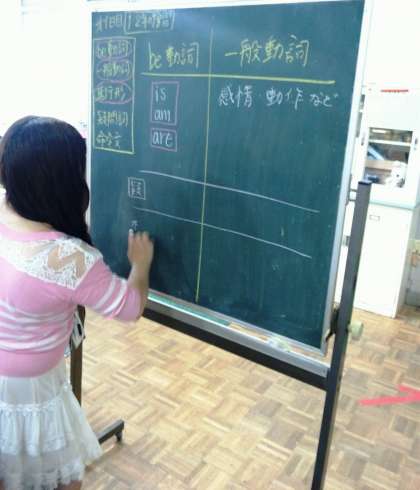 be動詞
一般動詞
進行形
疑問詞
命令文
be動詞
一般動詞
is
am
are
感情・動作など